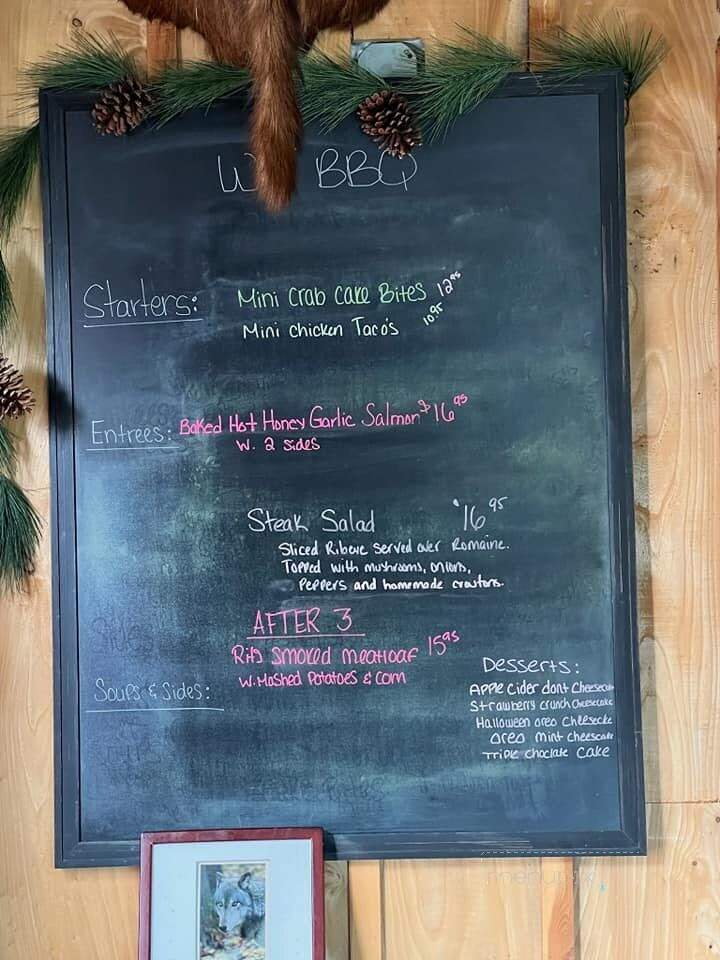 BBQ
Starters:
Mini Crab Cake Bites 12 95
Mini Chicken Taco's 10.95
Entrees:
Baked Hot Honey Garlic Salmon $16 95
W. 2 sides
Steak Salad $16 95
Sliced Ribeye Served over Romaine.
Topped with mushrooms, onions,
Peppers and homemade croutons.
AFTER 3
Rita Smoked meatloaf 15 95
W. Mashed Potatoes & corn
Soups & Sides:
Desserts:
Apple Cider dont Cheesecake
Strawberry crunch Cheesecake
Halloween oreo Cheesecke
Oreo mint cheesecake
Triple choclate Cake